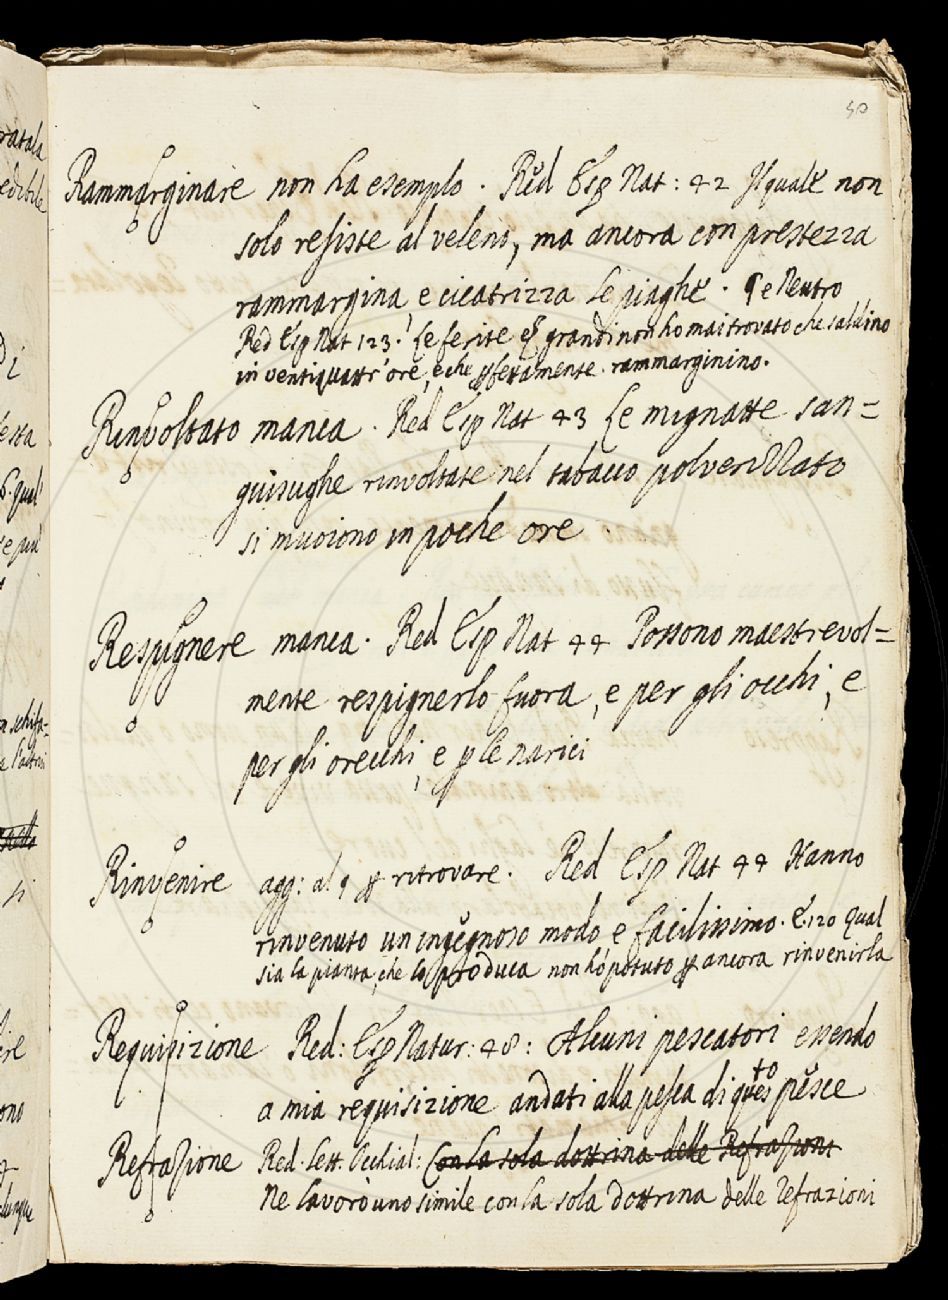 50
Rammarginare non ha esemplo. Red Esp Nat: 42 Il quale non
solo resiste al veleno, ma ancora con prestezza
rammargina, e cicatrizza le piaghe. e Neutro
Red Esp Nat 123. Le ferite grandi non ho mai trovato che saldino
in ventiquattr'ore, e che rammarginino.
Rinvoltato manca. Red Esp Nat 43 Le mignatte san=
guisughe rinvoltate nel tabacco polverizzato
si muoiono in poche ore
Respignere manca. Red Esp Nat 44 Possono maestrevol=
mente respignerlo fuora, e per gli occhi, e
per gli orecchi, e p le narici
Rinvenire agg: al § p ritrovare. Red Esp Nat 44 Hanno
rinvenuto un ingegnoso modo e facilissimo. E. 120 qual
sia la pianta, che lo produca non hò potuto p ancora rinvenirla
Requisizione Red: Esp Natur: 48: Alcuni pescatori essendo
a mia requisizione andati alla pesca di questo pesce
Refrazione Red. Lett. Occhial: Con la sola dottrina delle Refrazioni
Ne lavorò uno simile con la sola dottrina delle refrazioni